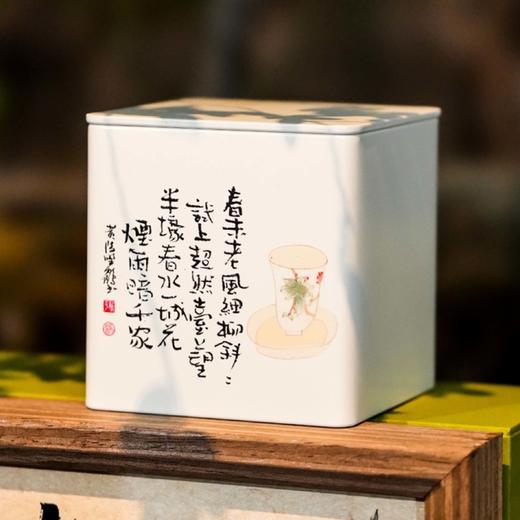 春未老風細柳斜〻
試上超然臺上望
半壕春水一城花
煙雨暗千家